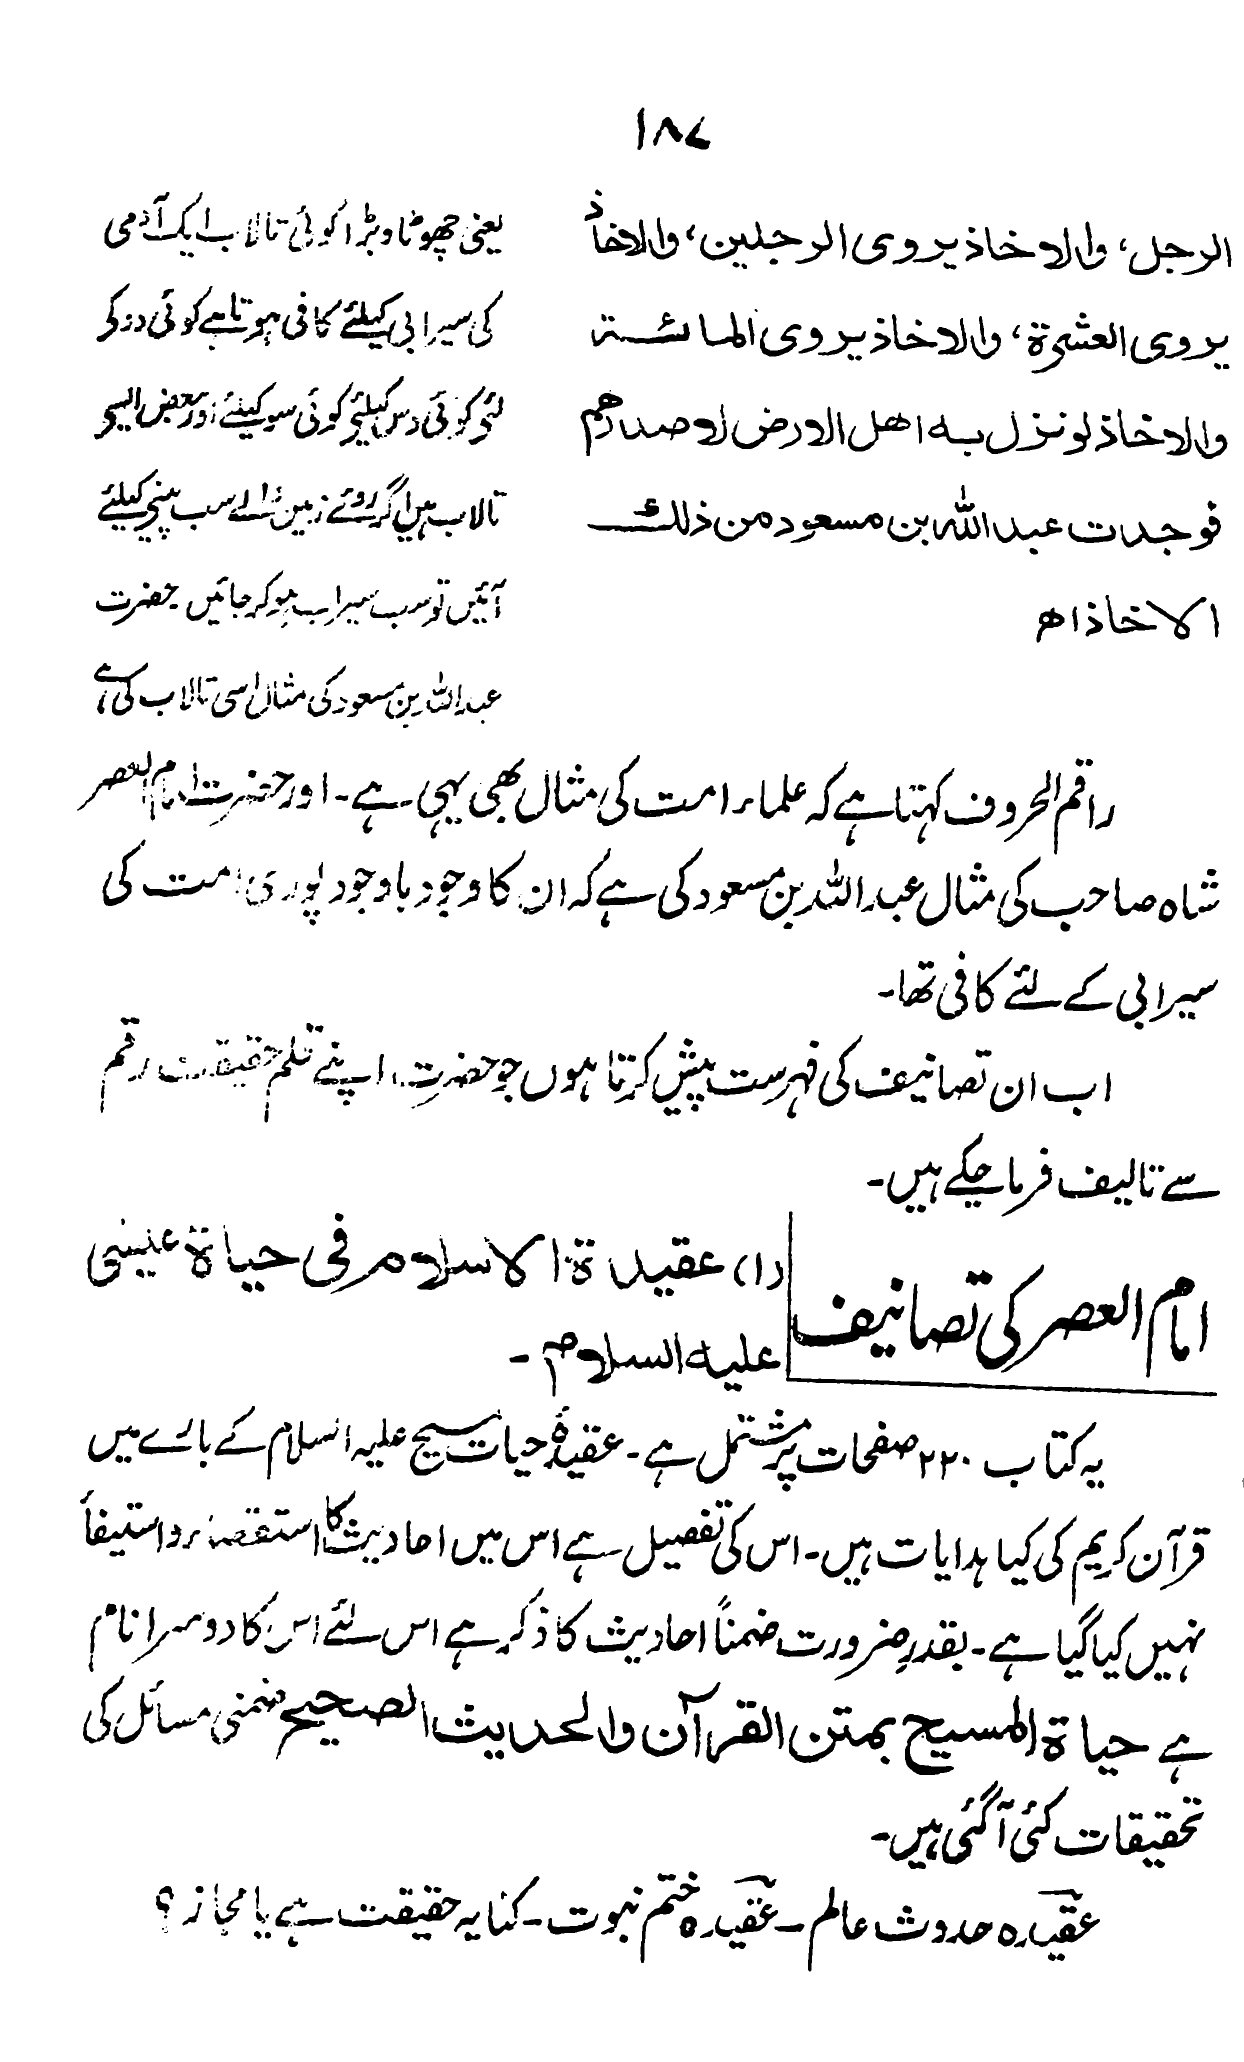 ۱۸۷
الرجل، والاخاذ يروى الرجلين، والاخاذ
يروى العشرة، والاخاذ يروى المائة
والاخاذ لو نزل به اهل الارض لاصدرهم
فوجدت عبد الله بن مسعود من ذلك
الاخاذ اھ
یعنی چھوٹا وبڑا کوئی تالاب ایک آدمی
کی سیرابی کیلئے کافی ہوتا ہے کوئی دو کے
لئے کوئی دس کیلئے کوئی سو کیلئے اور بعض ایسے
تالاب ہیں اگر روئے زمین والے سب پینے کیلئے
آئیں تو سب سیراب ہو کر جائیں۔ حضرت
عبد اللہ بن مسعود کی مثال اسی تالاب کی ہے
راقم الحروف کہتا ہے کہ علماء امت کی مثال بھی یہی ہے۔ اور حضرت امام العصر
شاہ صاحب کی مثال عبد اللہ بن مسعود کی ہے کہ ان کا وجود باوجود پوری امت کی
سیرابی کے لئے کافی تھا۔
اب ان تصانیف کی فہرست پیش کرتا ہوں جو حضرت اپنے قلم حقیقت رقم
سے تالیف فرما چکے ہیں۔
امام العصر کی تصانیف
(۱) عقیدۃ الاسلام فی حیاۃ عیسیٰ
علیہ السلام۔
یہ کتاب ۲۲۰ صفحات پر مشتمل ہے۔ عقیدۂ حیات مسیح علیہ السلام کے بارے میں
قرآن کریم کی کیا ہدایات ہیں۔ اس کی تفصیل ہے اس میں احادیث کا استقصاء و استیفاً
نہیں کیا گیا ہے۔ بقدرِ ضرورت ضمناً احادیث کا ذکر ہے اس لئے اس کا دوسرا نام
ہے حیاۃ المسیح بمتن القرآن والحدیث الصحیح ضمنی مسائل کی
تحقیقات کئی آگئی ہیں۔
عقیدہ حدوث عالم۔ عقیدہ ختم نبوت۔ کنایہ حقیقت ہے یا مجاز؟